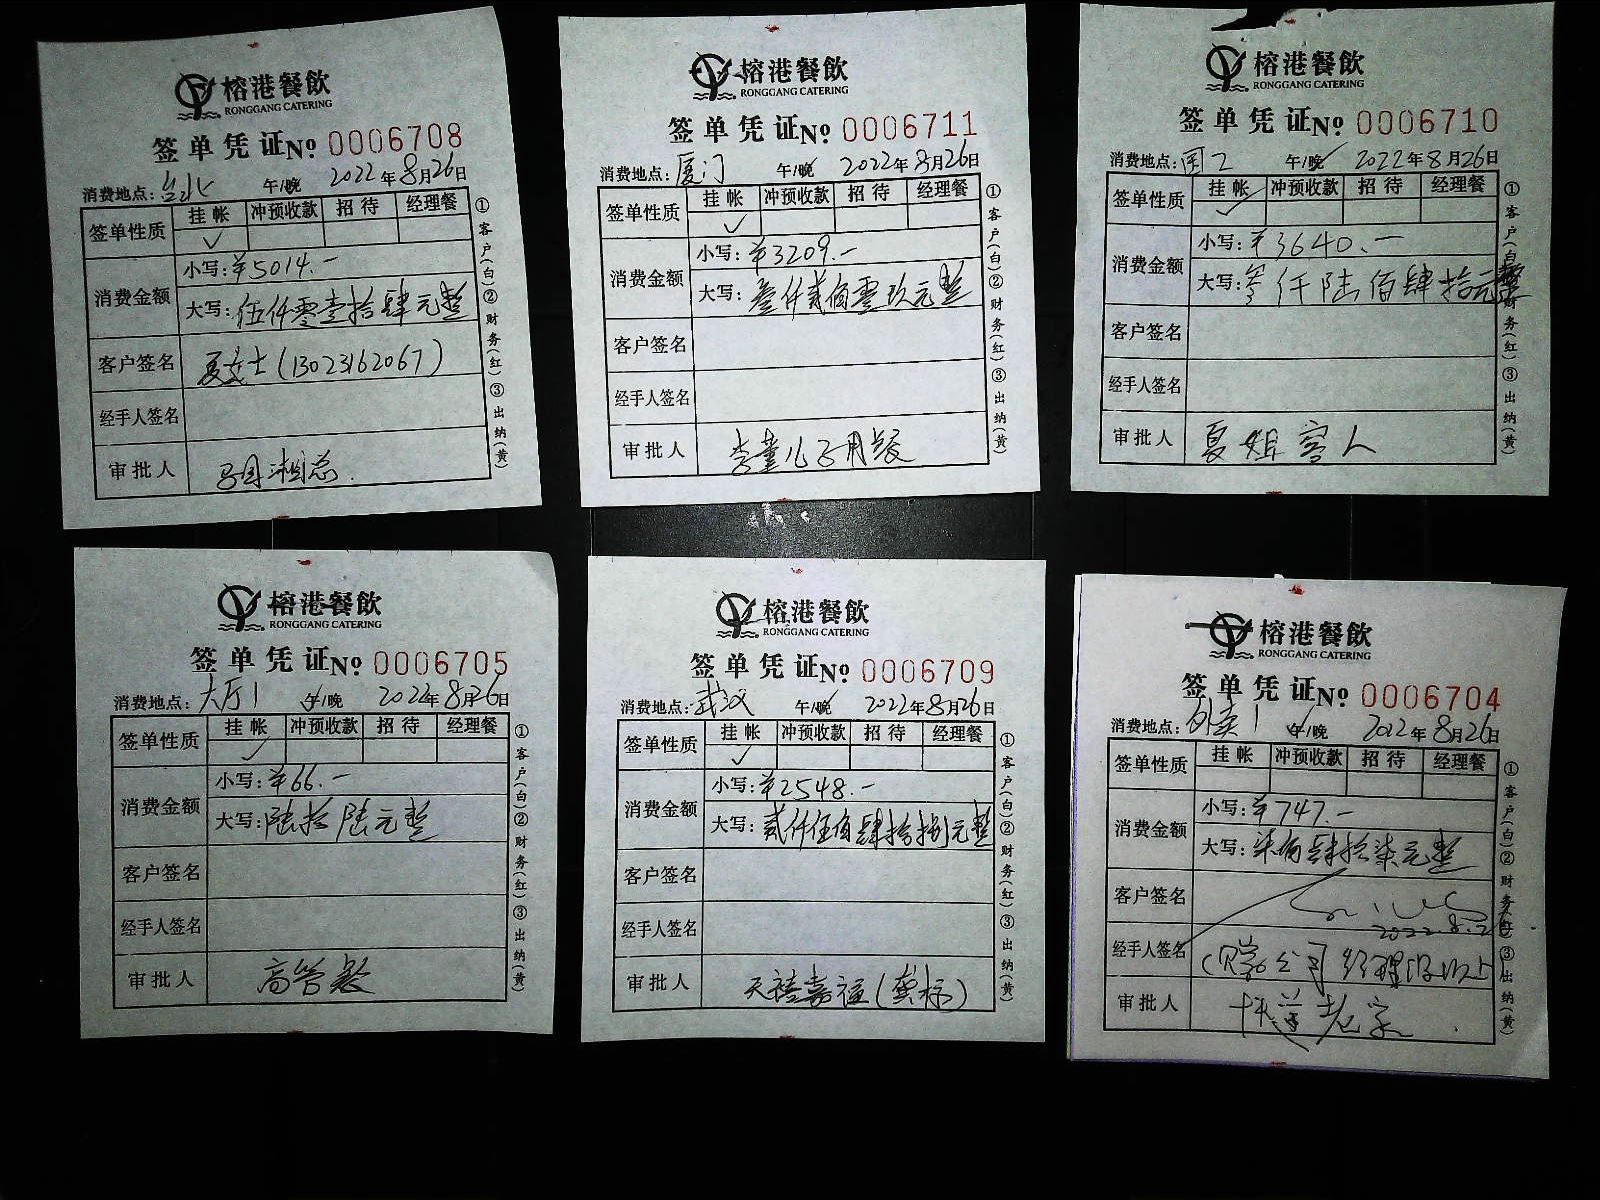 榕港餐飲
RONGGANG CATERING
签单凭证No 0006708
消费地点：台北 午/晚 2022年8月26日
签单性质 挂帐 冲预收款 招待 经理餐
✓
消费金额 小写：¥5014.-
大写：伍仟零壹拾肆元整
客户签名 夏女士（13023162067）
经手人签名
审批人
①客户(白)②财务(红)③出纳(黄)
榕港餐飲
RONGGANG CATERING
签单凭证No 0006711
消费地点：厦门 午/晚 2022年8月26日
签单性质 挂帐 冲预收款 招待 经理餐
✓
消费金额 小写：¥3209.-
大写：叁仟贰佰零玖元整
客户签名
经手人签名
审批人 李董儿子用餐
①客户(白)②财务(红)③出纳(黄)
榕港餐飲
RONGGANG CATERING
签单凭证No 0006710
消费地点： 午/晚 2022年8月26日
签单性质 挂帐 冲预收款 招待 经理餐
✓
消费金额 小写：¥3640.-
大写：叁仟陆佰肆拾元整
客户签名
经手人签名
审批人 夏姐客人
①客户(白)②财务(红)③出纳(黄)
榕港餐飲
RONGGANG CATERING
签单凭证No 0006705
消费地点：大厅1 午/晚 2022年8月26日
签单性质 挂帐 冲预收款 招待 经理餐
✓
消费金额 小写：¥66.-
大写：陆拾陆元整
客户签名
经手人签名
审批人 高管餐
①客户(白)②财务(红)③出纳(黄)
榕港餐飲
RONGGANG CATERING
签单凭证No 0006709
消费地点：武汉 午/晚 2022年8月26日
签单性质 挂帐 冲预收款 招待 经理餐
✓
消费金额 小写：¥2548.-
大写：贰仟伍佰肆拾捌元整
客户签名
经手人签名
审批人 天禧嘉福（龚标）
①客户(白)②财务(红)③出纳(黄)
榕港餐飲
RONGGANG CATERING
签单凭证No 0006704
消费地点：外卖1 午/晚 2022年8月26日
签单性质 挂帐 冲预收款 招待 经理餐
消费金额 小写：¥747.-
大写：柒佰肆拾柒元整
客户签名
2022.8.2
经手人签名
审批人
①客户(白)②财务(红)③出纳(黄)